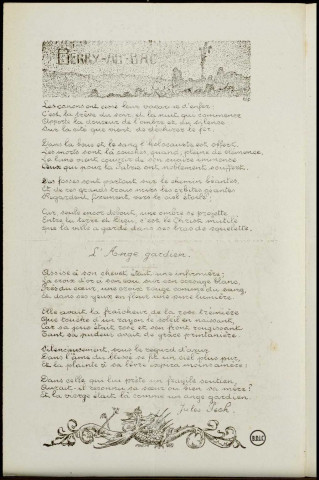 BERRY-AU-BAC
Les canons ont cessé leur vacarme d'enfer:
C'est la trêve du soir et la nuit qui commence
Apporte la douceur de l'ombre et du silence
Sur la cité que mord de déchirer le fer.
Dans la boue et le sang l'holocauste est offert.
Les morts sont là couchés, quand, pleine de clémence,
La lune vient couvrir de son suaire immense
Ceux qui pour la Patrie ont noblement souffert.
Des fosses sont partout sur le chemin béantes
Et de ces grands trous noirs les orbites géantes
Regardent, fixement, vers le ciel étoilé;
Car, seule encor debout, une ombre se projette
Entre la terre et Dieu, c'est le Christ mutilé
Que la ville a gardé dans ses bras de squelette.
L'Ange gardien.
Assise à son chevet était une infirmière;
La croix d'or à son cou, sur son corsage blanc,
Près du cœur, une croix rouge couleur du sang,
Et dans ses yeux en fleur une pure lumière.
Elle avait la fraîcheur de la rose trémière
Que touche d'un rayon le soleil en naissant,
Car sa joue était rose et son front rougissant
Tant sa pudeur avait de grâce printanière.
Silencieusement, sous le regard d'azur,
Dans l'âme du blessé se fit un ciel plus pur,
Et la plainte à sa lèvre expira moins amère;
Dans celle qui lui prête un fragile soutien,
Aurait-il reconnu sa sœur ou bien sa mère?
Et la vierge était là comme un ange gardien.
Jules
B.D.I.C